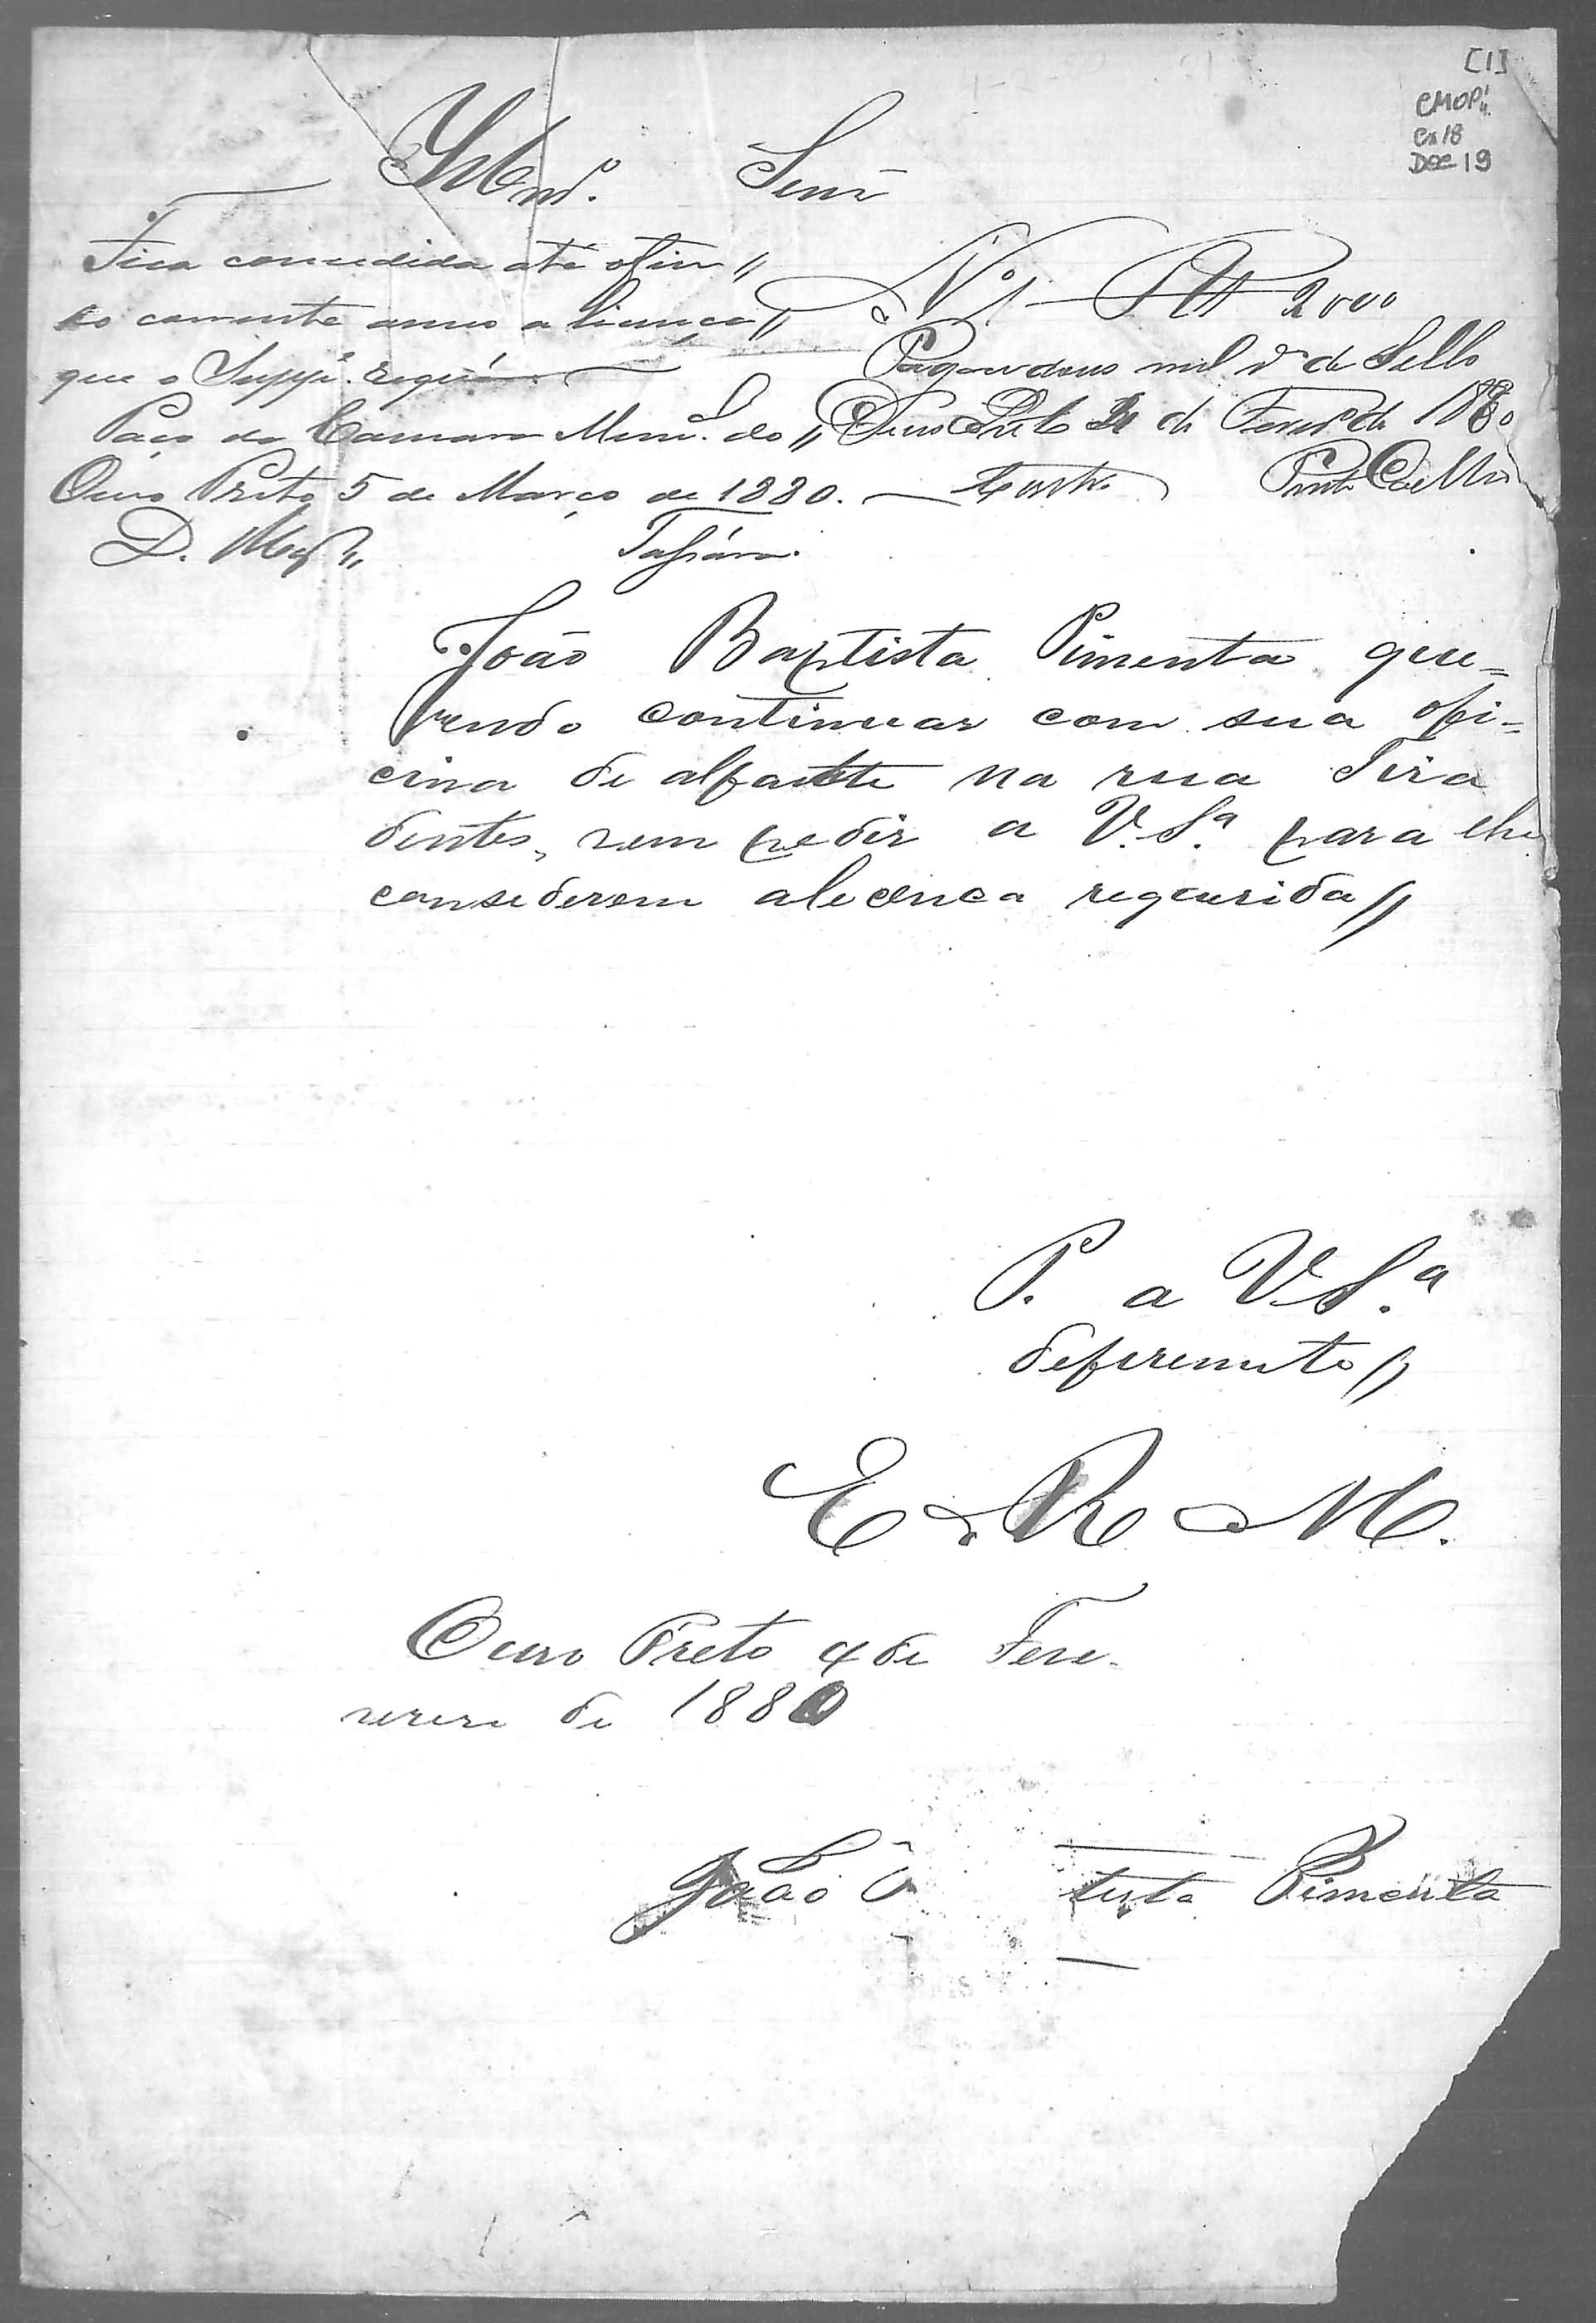 [1]
CMOP
Cx 18
Doc 19
Illmo. Senr
Fica concedida até o fim
do corrente anno a licença
que o Suppe. requér.
Paço da Camara Munl. do
Ouro Preto, 5 de Março de 1880.
Nº 1 2000
Pagou dous mil rs de Sello
Ouro Preto de Fevro de 1880
Castro Pinto Coelho
João Baptista Pimenta que-
rendo continuar com sua ofi-
cina de alfaiate na rua Tira
dentes, vem pedir a V. Sª. para lhe
considerem alecenca requerida
P. a V. Sª.
deferemento
E. R. M.
Ouro Preto 4 de Feve-
rero de 1880
João tista Pimenta